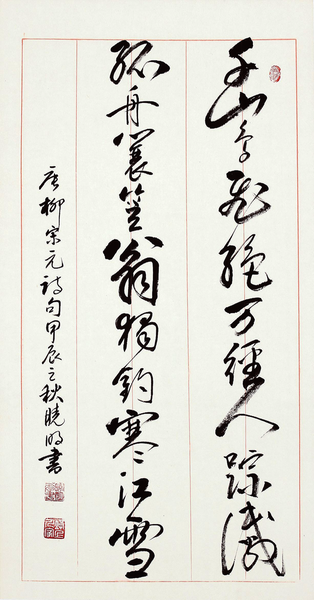 千山鸟飞绝万径人踪灭
孤舟蓑笠翁独钓寒江雪
唐柳宗元诗句甲辰之秋晓明书